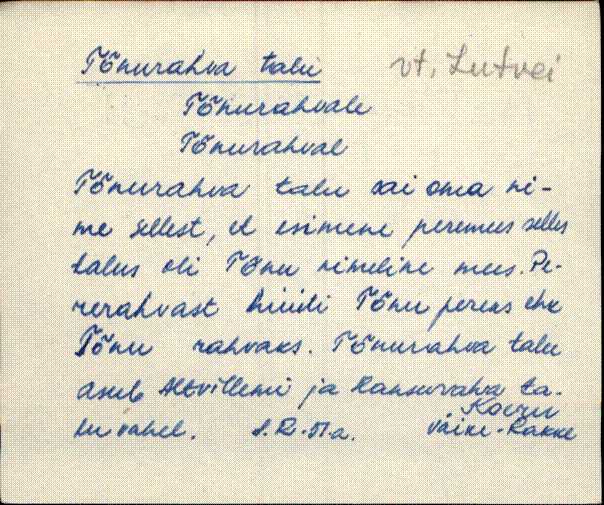 Tõnurahva talu vt. Lutvei
Tõnurahvale
Tõnurahval
Tõnurahva talu sai oma ni-
me sellest, et esimene peremees selles
talus oli Tõnu nimeline mees. Pe-
rerahvast hüüti Tõnu pereks ehk
Tõnu rahvaks. Tõnurahva talu
asub Altvillemi ja Hansurahva ta-
lu vahel. s. R. 51. a. Koeru
Väike-Rakke